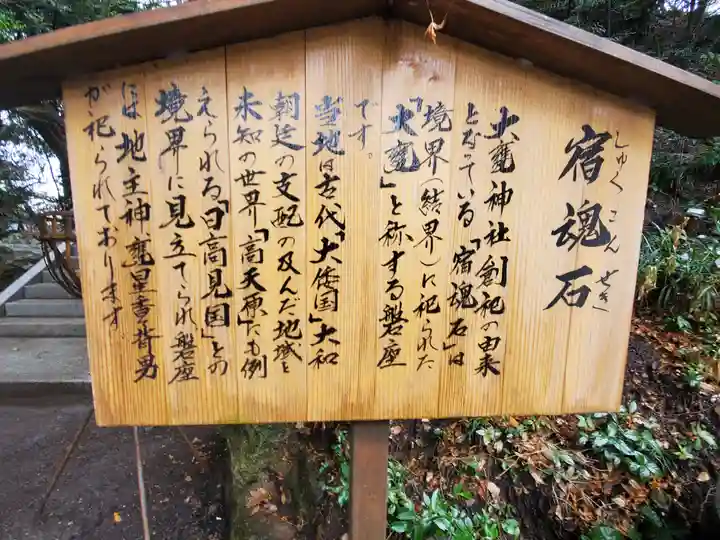 宿魂石
しゅくこんせき
大甕神社創祀の由来
となっている「宿魂石」は
境界(結界)に祀られた
「大甕」と称する磐座
です。
当地は古代「大倭国」大和
朝廷の支配の及んだ地域と
未知の世界「高天原」にも例
えられる「日高見国」との
境界に見立てられ磐座
には地主神、甕星香背男
が祀られております。